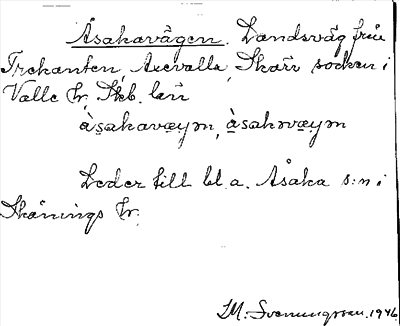 Åsakavägen. Landsväg från
Trekanten, Axevalla, Skärv socken i
Valle hr, Skb. län
àsakavæym, àsakavæym
Leder till bl. a. Åsaka s:n i
Skånings hr.
M. Svenungsson. 1946